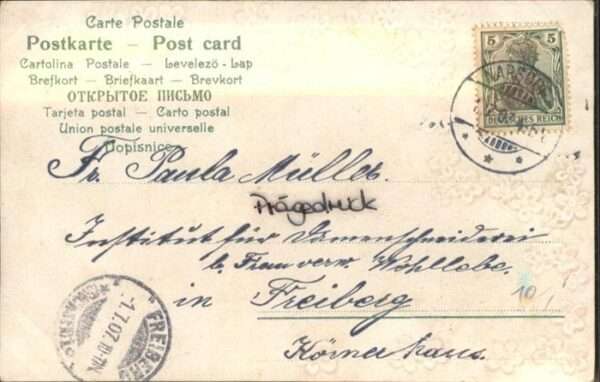 Carte Postale
Postkarte — Post card
Cartolina Postale — Levelező-Lap
Brefkort — Briefkaart — Brevkort
ОТКРЫТОЕ ПИСЬМО
Tarjeta postal — Carto postal
Union postale universelle
Dopisnice
5 5
DEUTSCHES REICH
Fr. Paula Müller.
Prägedruck
Institut für Damenschneiderei
b. Frau verw. Wohllebe.
in Freiberg
Körnerhaus.
10,
FREIBERG
1.7.07.